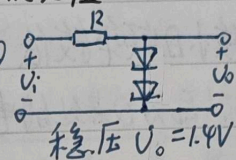 R
+ Ui -
+ Uo -
稳压 Uo=1.4V